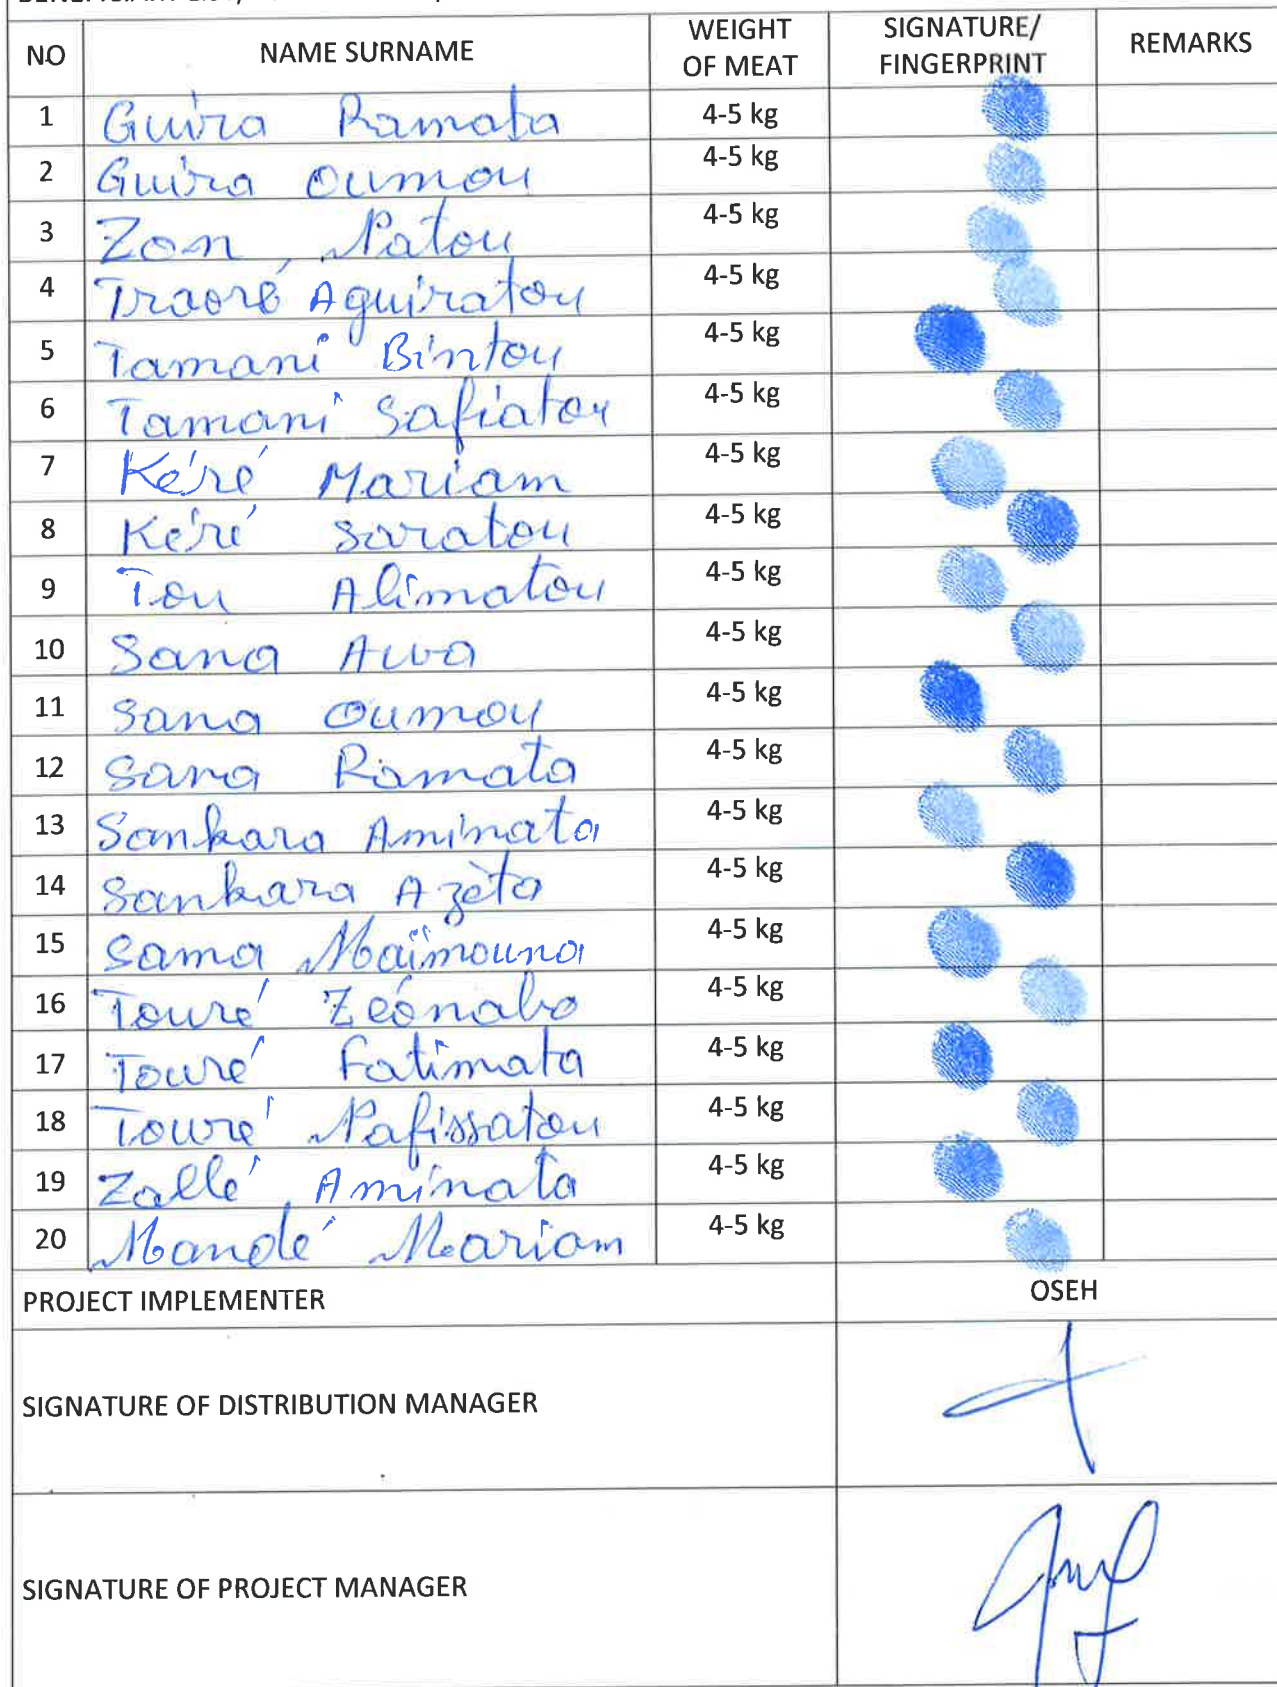 NO NAME SURNAME WEIGHT OF MEAT SIGNATURE/ FINGERPRINT REMARKS
1 Guira Ramata 4-5 kg
2 Guira Oumou 4-5 kg
3 Zon Natou 4-5 kg
4 Traoré Aguiratou 4-5 kg
5 Tamani Bintou 4-5 kg
6 Tamani Safiatou 4-5 kg
7 Kéré Mariam 4-5 kg
8 Kéré Saratou 4-5 kg
9 Tou Alimatou 4-5 kg
10 Sana Awa 4-5 kg
11 Sana Oumou 4-5 kg
12 Sana Ramata 4-5 kg
13 Sankara Aminata 4-5 kg
14 Sankara Azèta 4-5 kg
15 Sama Maïmouna 4-5 kg
16 Touré Zeénabo 4-5 kg
17 Touré Fatimata 4-5 kg
18 Touré Nafissatou 4-5 kg
19 Zallé Aminata 4-5 kg
20 Mandé Mariam 4-5 kg
PROJECT IMPLEMENTER OSEH
SIGNATURE OF DISTRIBUTION MANAGER
SIGNATURE OF PROJECT MANAGER